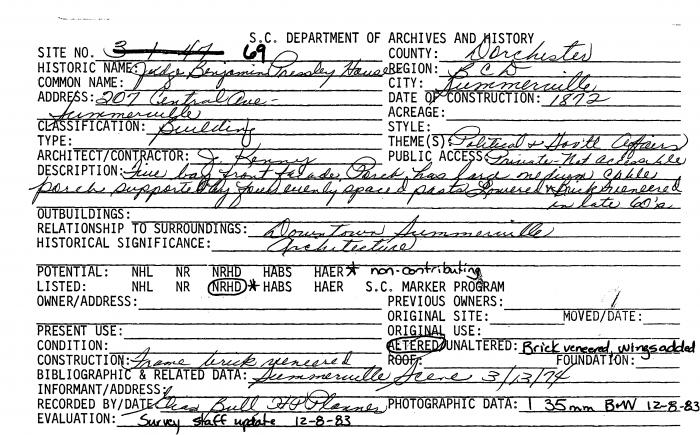 S.C. DEPARTMENT OF ARCHIVES AND HISTORY
SITE NO. 69 COUNTY: Dorchester
HISTORIC NAME: Judge Benjamin Pressley House REGION: BCD
COMMON NAME: CITY: Summerville
ADDRESS: 207 Central Ave- DATE OF CONSTRUCTION: 1872
Summerville ACREAGE:
CLASSIFICATION: Building STYLE:
TYPE: THEME(S): Political & Gov'tl Affairs
ARCHITECT/CONTRACTOR: J. Kenny PUBLIC ACCESS: Private-Not accessible
DESCRIPTION: five bay front facade, Porch has large medium gable
porch supported by four evenly spaced posts Lowered & Brick veneered
in late 60's
OUTBUILDINGS:
RELATIONSHIP TO SURROUNDINGS: Downtown Summerville
HISTORICAL SIGNIFICANCE: Architecture
POTENTIAL: NHL NR NRHD HABS HAER * non-contributing
LISTED: NHL NR NRHD * HABS HAER S.C. MARKER PROGRAM
OWNER/ADDRESS: PREVIOUS OWNERS:
ORIGINAL SITE: MOVED/DATE:
PRESENT USE: ORIGINAL USE:
CONDITION: ALTERED/UNALTERED: Brick veneered, wings added
CONSTRUCTION: frame brick veneered ROOF: FOUNDATION:
BIBLIOGRAPHIC & RELATED DATA: Summerville Scene 3/13/74
INFORMANT/ADDRESS:
RECORDED BY/DATE: Bull HP Planner PHOTOGRAPHIC DATA: 1 35mm B+W 12-8-83
EVALUATION: Survey staff update 12-8-83